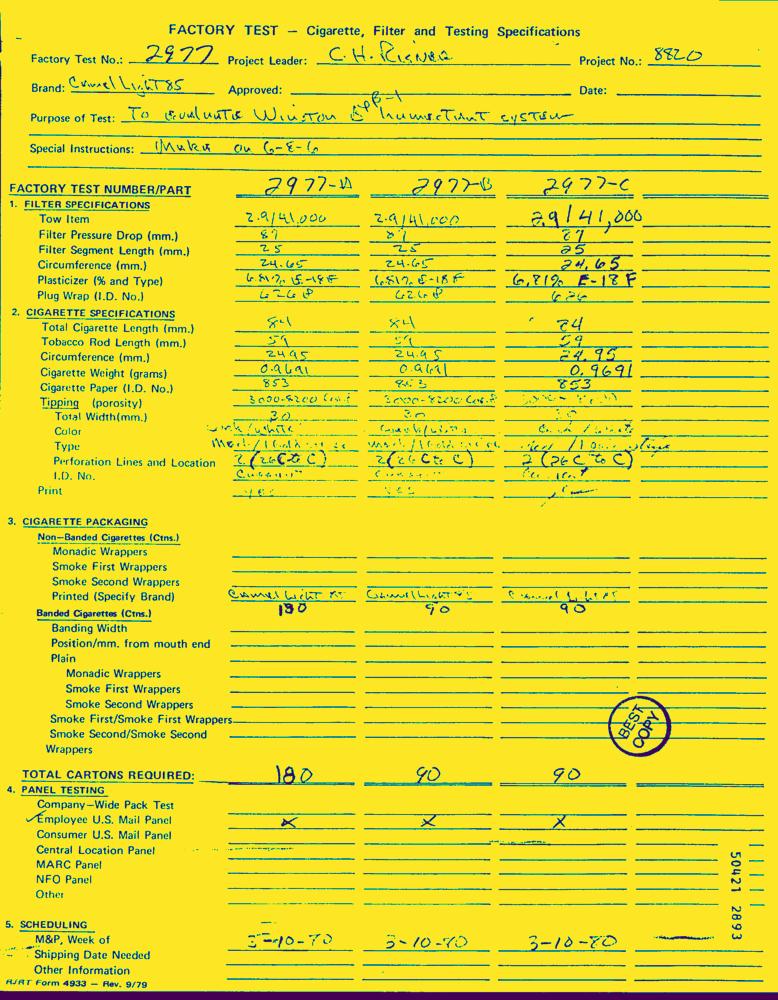 FACTORY TEST — Cigarette, Filter and Testing Specifications
Factory Test No.: 2977 Project Leader: C.H. Project No.: 8820
Brand: Camel Light 85 Approved: Date:
Purpose of Test: To evaluate Winston B-1 humectant system
Special Instructions: Make on
FACTORY TEST NUMBER/PART 2977-A 2977-B 2977-C
1. FILTER SPECIFICATIONS
Tow Item 2.9/41,000 2.9/41,000 2.9/41,000
Filter Pressure Drop (mm.) 87 87 87
Filter Segment Length (mm.) 25 25 25
Circumference (mm.) 24.65 24.65 24.65
Plasticizer (% and Type) 6.81% E-18F 6.81% E-18F 6.81% E-18F
Plug Wrap (I.D. No.) 626
2. CIGARETTE SPECIFICATIONS
Total Cigarette Length (mm.) 84 84 84
Tobacco Rod Length (mm.) 59 59 59
Circumference (mm.) 24.95 24.95 24.95
Cigarette Weight (grams) 0.9691 0.9691 0.9691
Cigarette Paper (I.D. No.) 853 853 853
Tipping (porosity) 3000-8200 3000-8200
Total Width(mm.) 30 30 30
Color
Type
Perforation Lines and Location 2 (26C to C) 2 (26C to C) 2 (26C to C)
I.D. No.
Print yes yes
3. CIGARETTE PACKAGING
Non—Banded Cigarettes (Ctns.)
Monadic Wrappers
Smoke First Wrappers
Smoke Second Wrappers
Printed (Specify Brand) Camel Light 85 Camel Light 85 Camel Light 85
180 90 90
Banded Cigarettes (Ctns.)
Banding Width
Position/mm. from mouth end
Plain
Monadic Wrappers
Smoke First Wrappers
Smoke Second Wrappers
Smoke First/Smoke First Wrappers
Smoke Second/Smoke Second
Wrappers
BEST COPY
TOTAL CARTONS REQUIRED: 180 90 90
4. PANEL TESTING
Company—Wide Pack Test
✓Employee U.S. Mail Panel X X X
Consumer U.S. Mail Panel
Central Location Panel
MARC Panel
NFO Panel
Other
5. SCHEDULING
M&P, Week of 3-10-80 3-10-80 3-10-80
Shipping Date Needed
Other Information
RJRT Form 4933 — Rev. 9/79
50421 2893